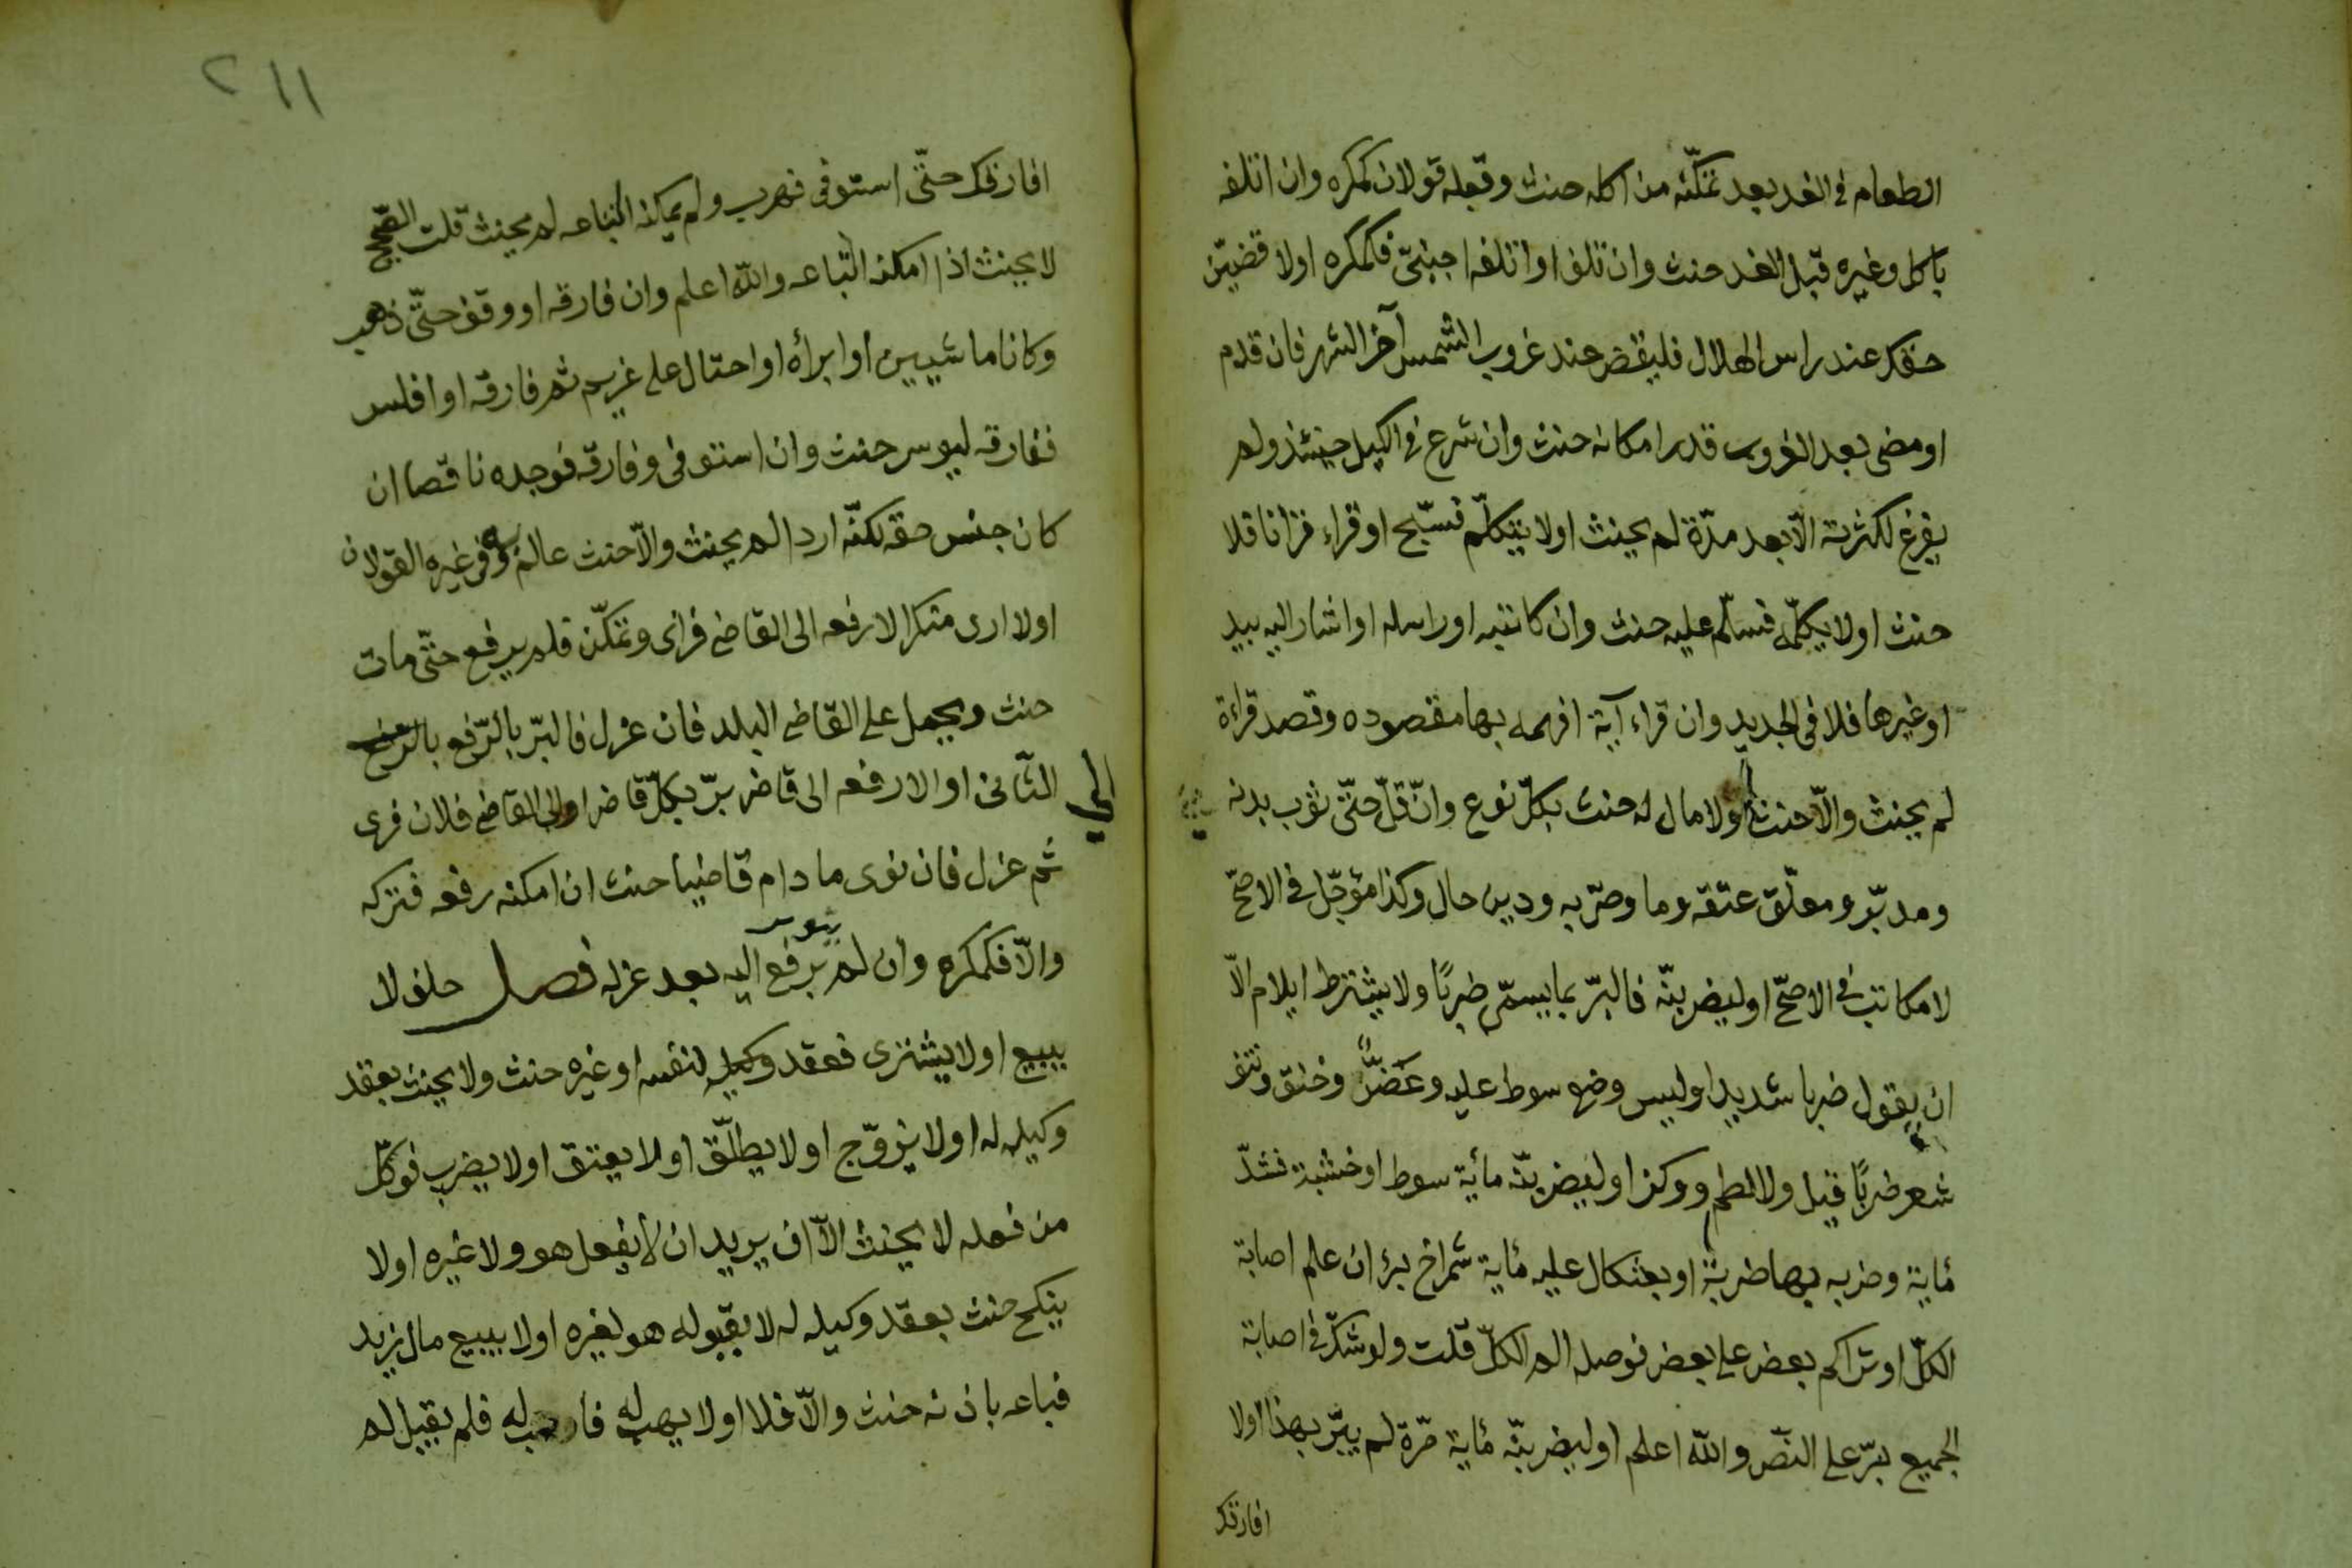 الطعام فى الغد بعد تمكّنه من اكله حنث وقبله قولان كمكره وان اتلفه
باكل وغيره قبل الغد حنث وان تلف او اتلفه اجنبىّ فكمكره اولا قضيّن
حقك عند راس الهلال فليقض عند غروب الشمس آخر الشهر فان قدم
او مضى بعد الغروب قدر امكانه حنث وان شرع فى الكيل حينئذ ولم
يفرغ لكثرته الّا بعد مدّة لم يحنث اولا يتكلّم فسبّح او قراء قرانا فلا
حنث اولا يكلّمه فسلّم عليه حنث وان كاتبه او راسله او اشار اليه بيد
او غيرها فلا فى الجديد وان قراء آية افهمه بها مقصوده وقصد قراءة
لم يحنث والّا حنث اولا مال له حنث بكلّ نوع وانّ قلّ حتّى ثوب بدنه
ومدبّر ومعلّق عتقه وما وصّى به ودين حال وكذا مؤجّل فى الاصحّ
لا مكاتب فى الاصحّ او ليضربنّه فالبرّ بما يسمّى ضربًا ولا يشترط ايلام الّا
ان يقول ضربا شديدا وليس وضع سوط عليه وعضّ وخنق ونتف
شعر ضربًا قيل ولا لطم ووكز او ليضربنّه مأية سوط او خشبة فشدّ
مأية وضربه بها ضربة او بعثكال عليه مأية شمراخ برّ ان علم اصابة
الكلّ او تراكم بعض على بعض فوصله الم الكلّ قلت ولو شكّ فى اصابة
الجميع برّ على النصّ والله اعلم او ليضربنّه مأية مرّة لم يبرّ بهذا اولا
افارقك
٢١١
افارقك حتّى استوفى فهرب ولم يمكنه اتّباعه لم يحنث قلت الصّحيح
لا يحنث اذا امكنه اتّباعه والله اعلم وان فارقه او وقف حتّى ذهب
وكانا ماشيين او ابرأه او احتال على غريم ثم فارقه او افلس
ففارقه ليوسر حنث وان استوفى وفارقه فوجده ناقصا ان
كان جنس حقه لكنّه اردا لم يحنث والّا حنث عالم به وفى غيره القولان
اولا ارى منكرا الا رفعه الى القاضى فراى وتمكّن فلم يرفع حتّى مات
حنث ويحمل على القاضى البلد فان عزل فالبرّ بالرّفع بالرّفع
الى
الثّانى او الا رفعه الى قاض برّ بكلّ قاض او الى القاضى فلان فرى
ثم عزل فان نوى ما دام قاضيا حنث ان امكنه رفعه فتركه
والّا فكمكره وان لم ينو برّ برفع اليه بعد عزله فصل حلف لا
يبيع اولا يشترى فعقد وكيله لنفسه او غيره حنث ولا يحنث بعقد
وكيله له اولا يزوّج اولا يطلّق اولا يعتق اولا يضرب فوكّل
من فعله لا يحنث الّا ان يريد ان لا يفعل هو ولا غيره اولا
ينكح حنث بعقد وكيله له لا بقبوله هو لغيره اولا يبيع مال زيد
فباعه باذنه حنث والّا فلا اولا يهب له فاوجب له فلم يقبل لم